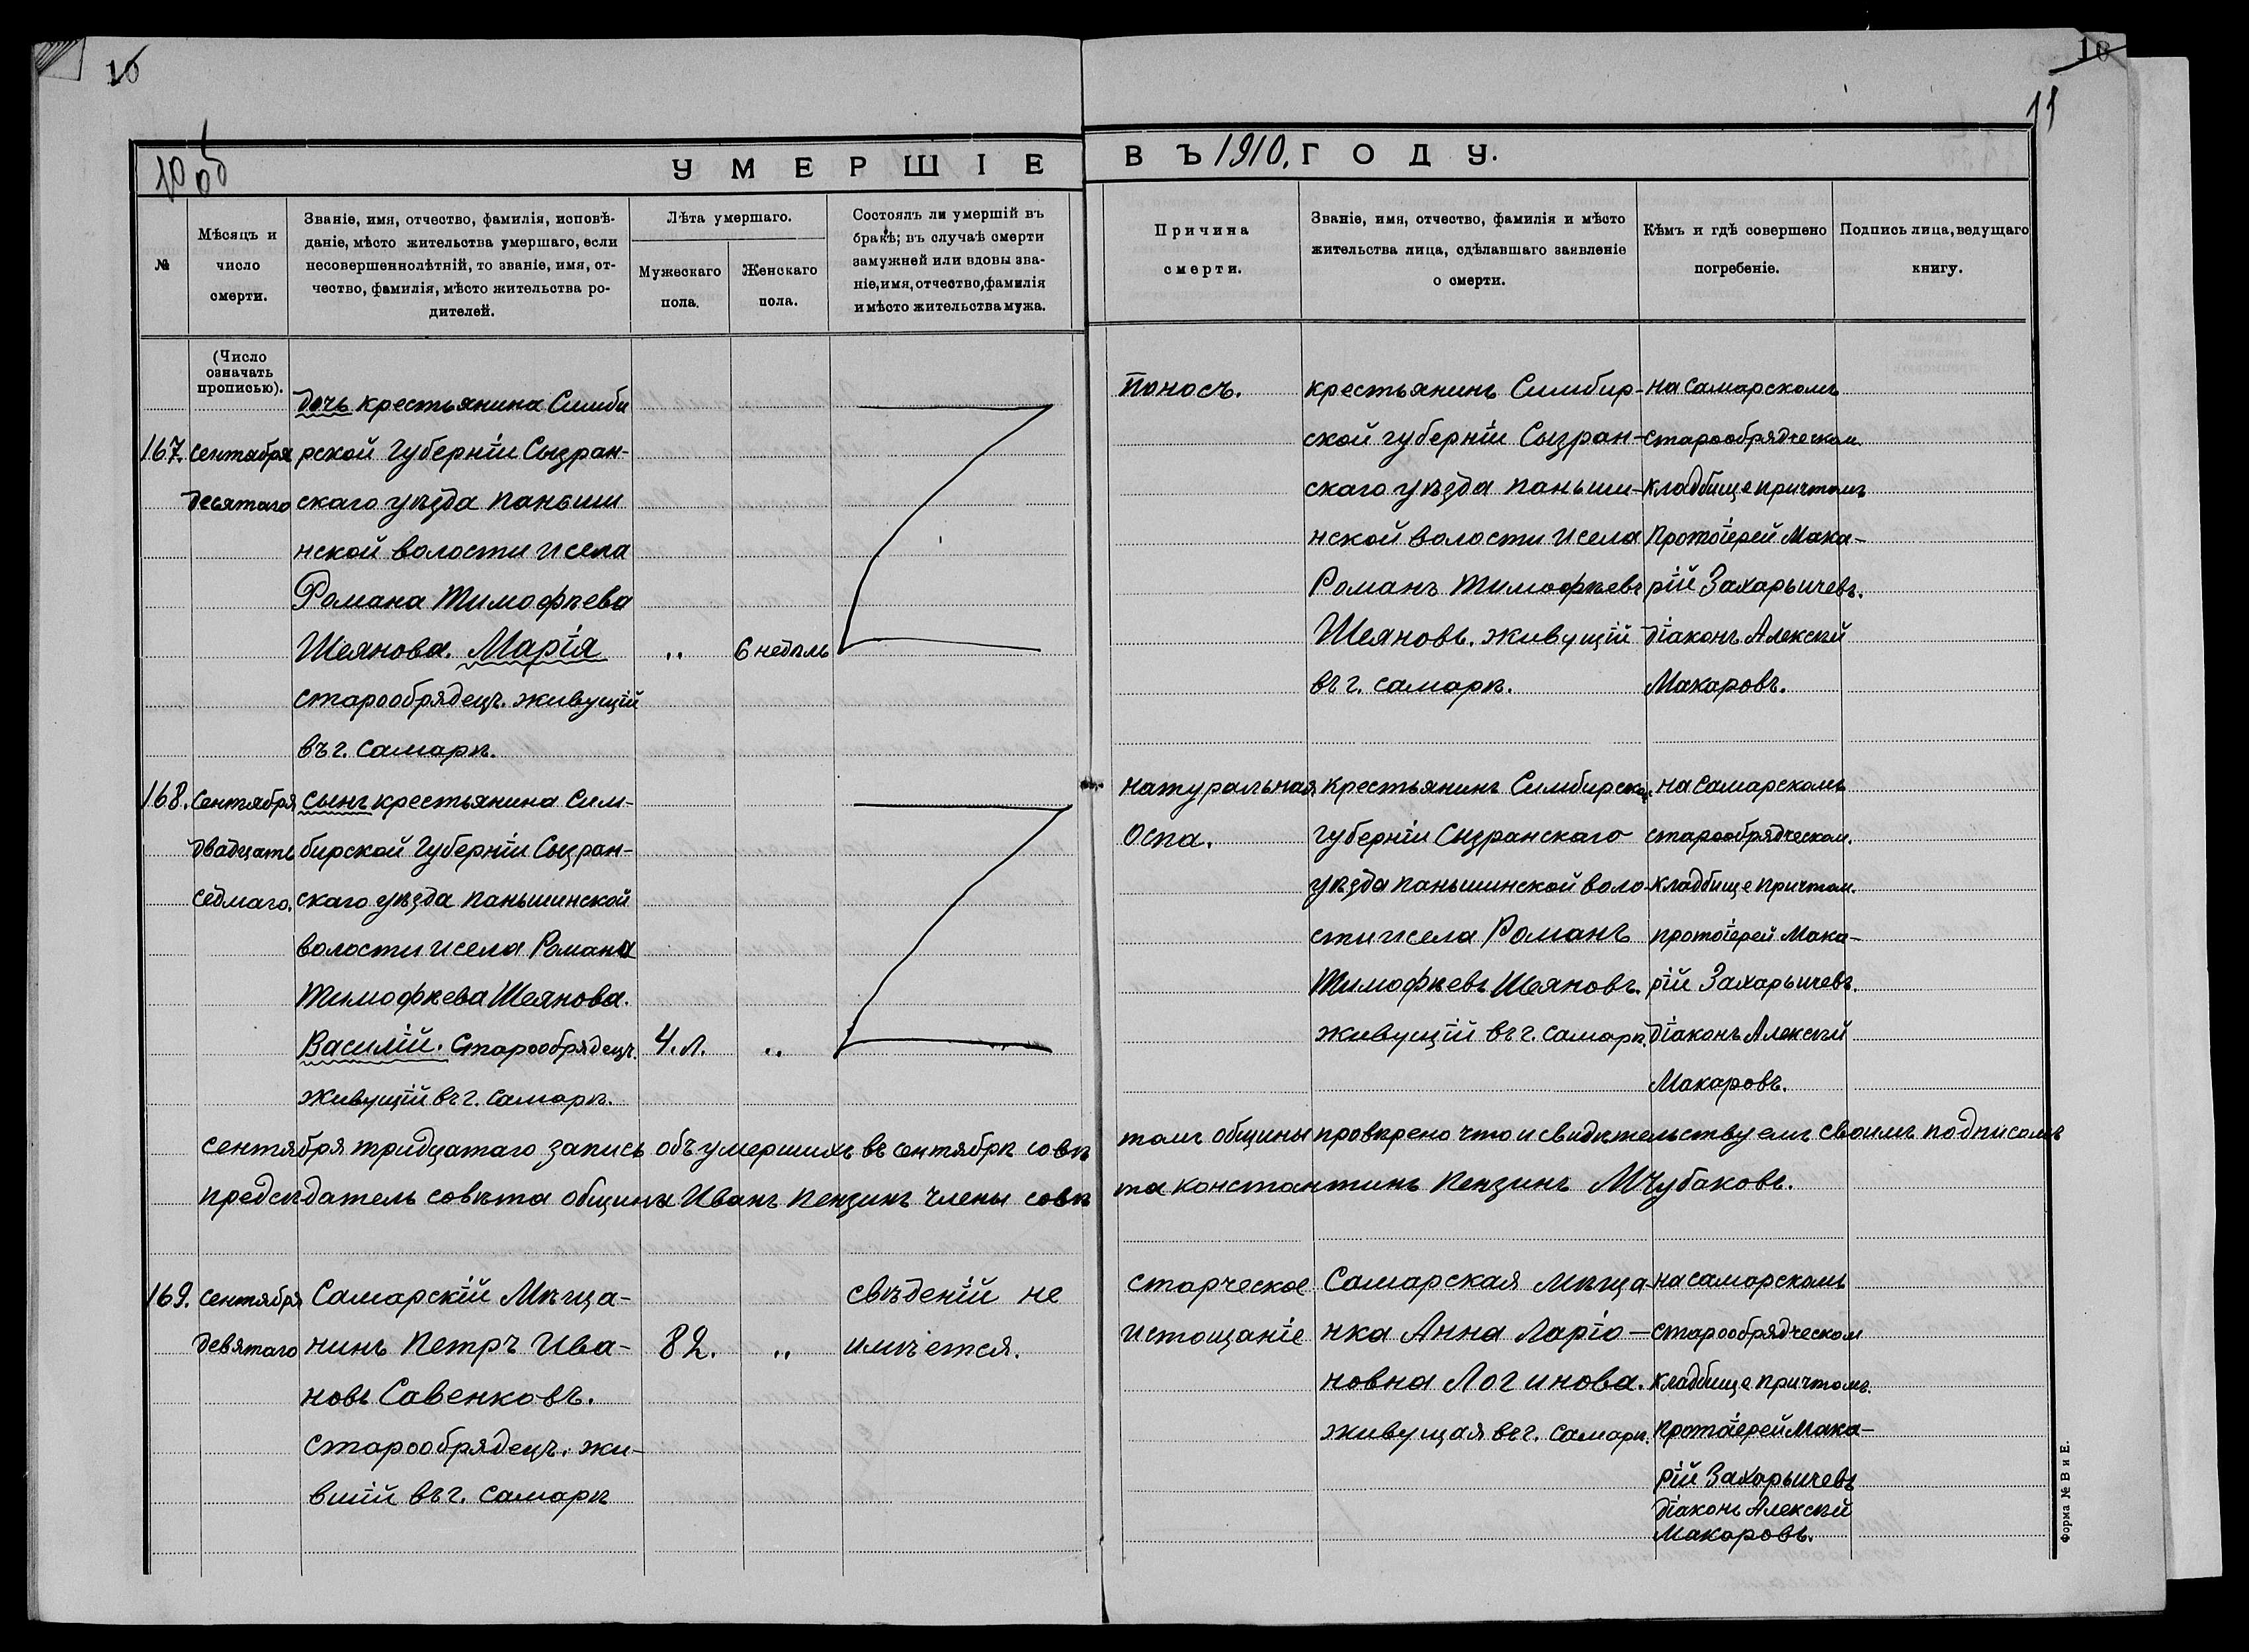 10
10
11
10 об
УМЕРШІЕ
ВЪ 1910. ГОДУ.
№
Мѣсяцъ и
число
смерти.
Званіе, имя, отчество, фамилія, исповѣ-
даніе, мѣсто жительства умершаго, если
несовершеннолѣтній, то званіе, имя, от-
чество, фамилія, мѣсто жительства ро-
дителей.
Лѣта умершаго.
Мужескаго
пола.
Женскаго
пола.
Состоялъ ли умершій въ
бракѣ; въ случаѣ смерти
замужней или вдовы зва-
ніе, имя, отчество, фамилія
и мѣсто жительства мужа.
Причина
смерти.
Званіе, имя, отчество, фамилія и мѣсто
жительства лица, сдѣлавшаго заявленіе
о смерти.
Кѣмъ и гдѣ совершено
погребеніе.
Подпись лица, ведущаго
книгу.
(Число
означать
прописью).
167.
Сентября
десятаго
дочь крестьянина Симби
рской Губерніи Сызран-
скаго уѣзда паньши
нской волости и села
Романа Тимофѣева
Шеянова. Марія
старообрядецъ. живущій
въ г. Самарѣ.
„
6 недѣль
Поносъ.
крестьянинъ Симбир-
ской губерніи Сызран-
скаго уѣзда паньши-
нской волости и села
Романъ Тимофѣевъ
Шеяновъ. живущій
въ г. Самарѣ.
на Самарскомъ
старообрядческом.
кладбище причтомъ
Протоіерей Мака-
рій Захарычевъ.
діаконъ Алексѣй
Макаровъ.
168.
Сентября
двадцать
седмаго.
сынъ крестьянина Сим-
бирской Губерніи Сызран-
скаго уѣзда паньшинской
волости и села Романа
Тимофѣева Шеянова.
Василій. Старообрядецъ.
живущій въ г. Самарѣ.
4. л.
„
натуральная
Оспа.
крестьянинъ Симбирской
губерніи Сызранскаго
уѣзда паньшинской воло-
сти и села Романъ
Тимофѣевъ Шеяновъ.
живущій въ г. Самарѣ.
на Самарскомъ
старообрядческом.
кладбище причтом.
протоіерей Мака-
рій Захарычевъ.
діаконъ Алексѣй
Макаровъ.
сентября тридцатаго запись объ умершихъ въ сентябрѣ совѣ
томъ общины провѣрено что и свидѣтельствуемъ своимъ подписомъ
предсѣдатель совѣта общины Иванъ Пензинъ члены совѣ
та константинъ Пензинъ М Чубаковъ.
169.
Сентября
девятаго
Самарскій Мѣща-
нинъ Петръ Ива-
новъ Савенковъ.
Старообрядецъ. жи-
вшій въ г. Самарѣ
82.
„
свѣденій не
имѣется.
старческое
истощаніе
Самарская мѣща-
нка Анна Ларіо-
новна Логинова.
живущая въ г. Самарѣ.
на самарскомъ
старообрядческом
кладбище причтомъ.
протоіерей Мака-
рій Захарычевъ
діаконъ Алексѣй
Макаровъ.
Форма № В и Е.